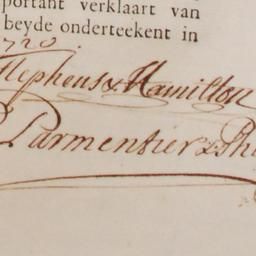 portant verklaart van
beyde onderteekent in
1720.
Stephens & Hamilton
Parmentier &